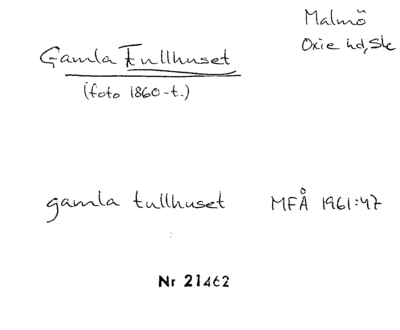 Malmö
Oxie hd, Sk
Gamla Tullhuset
(foto 1860-t.)
gamla tullhuset MFÅ 1961:47
Nr 21462